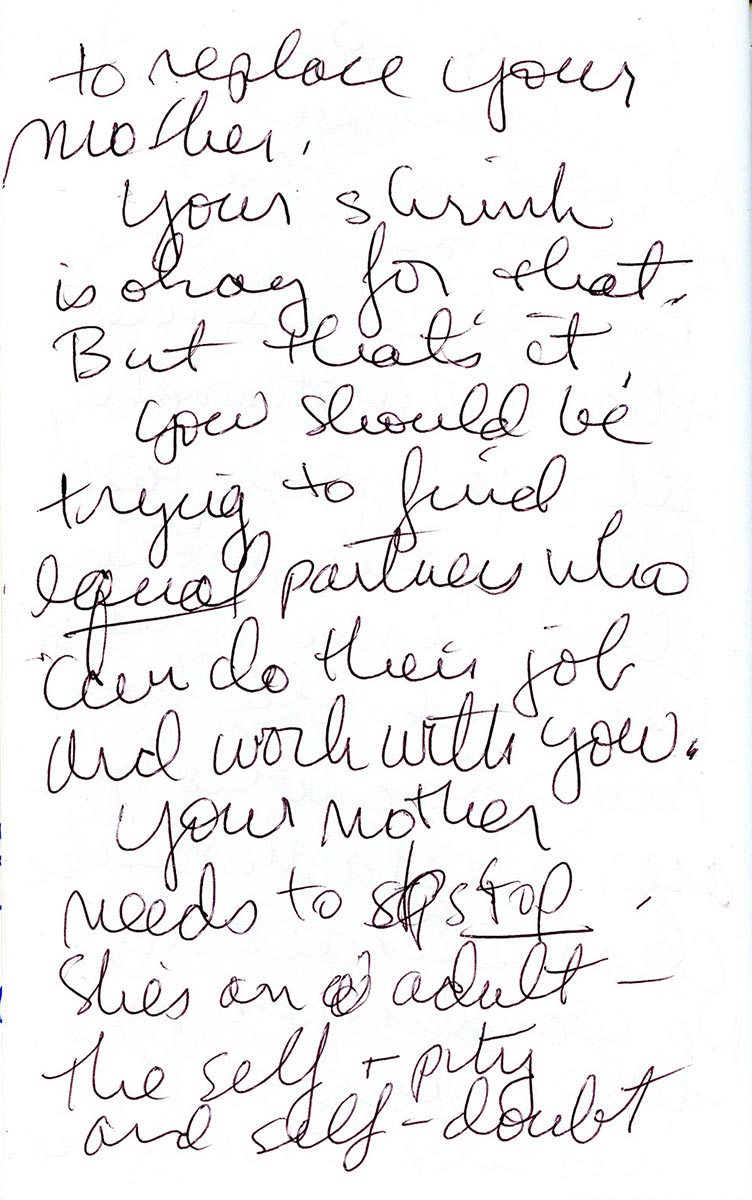 to replace your
mother.
Your shrink
is okay for that.
But that's it.
You should be
trying to find
equal partners who
can do their job
and work with you.
Your mother
needs to stop.
She's an adult —
the self + pity
and self-doubt